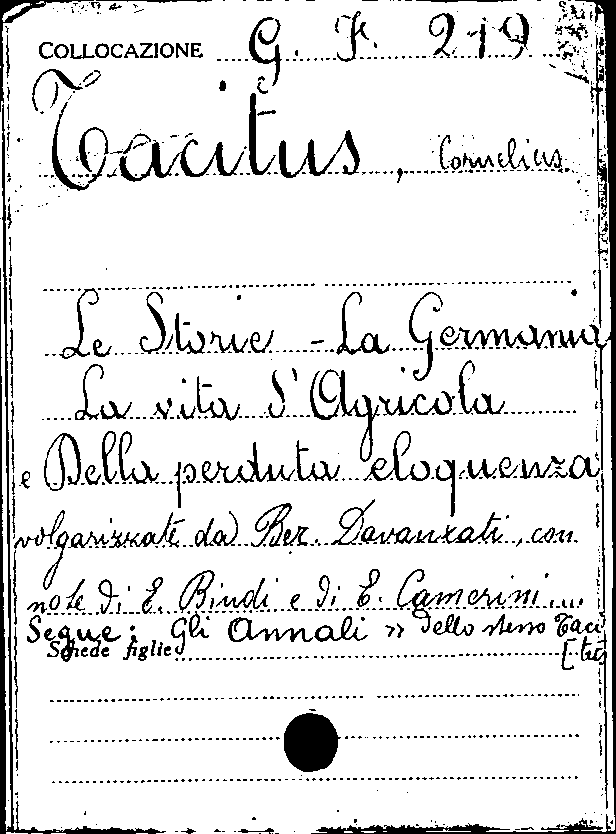 COLLOCAZIONE G. F. 219
Tacitus, Cornelius
Le Storie - La Germania
La vita d'Agricola
e Della perduta eloquenza
volgarizzate da Ber. Davanzati, con
note di E. Bindi e di E. Camerini....
Segue: Gli Annali » dello stesso Taci
Schede figlie [to